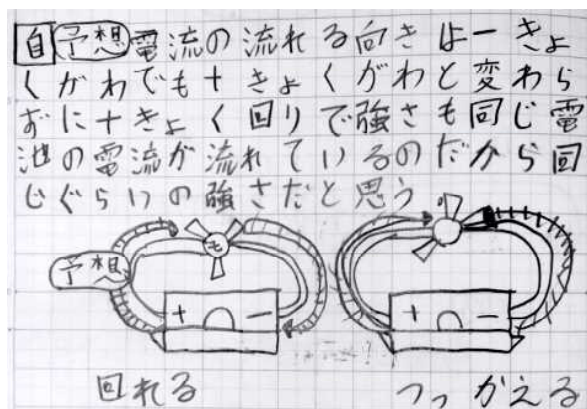 自 予想 電流の流れる向きは一きょ
くがわでも十きょくがわと変わら
ずに十きょく回りで強さも同じ電
池の電流が流れているのだから同
じぐらいの強さだと思う。
予想
も
+ −
+ −
回れる
つっかえる